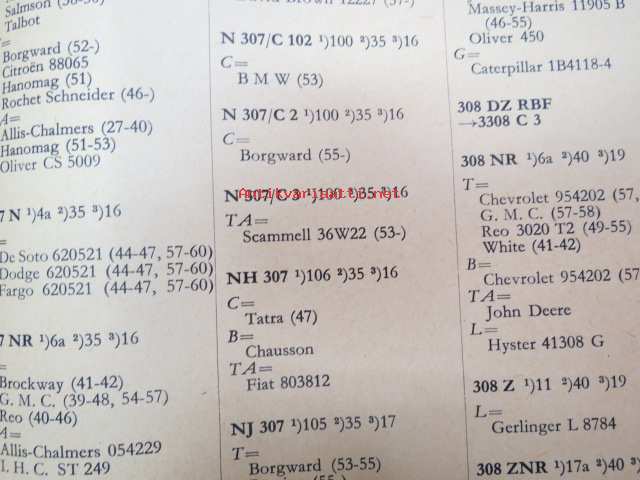 Salmson
Talbot
Borgward (52-)
Citroën 88065
Hanomag (51)
Rochet Schneider (46-)
A=
Allis-Chalmers (27-40)
Hanomag (51-53)
Oliver CS 5009
7 N ¹)4a ²)35 ³)16
De Soto 620521 (44-47, 57-60)
Dodge 620521 (44-47, 57-60)
Fargo 620521 (44-47, 57-60)
7 NR ¹)6a ²)35 ³)16
Brockway (41-42)
G. M. C. (39-48, 54-57)
Reo (40-46)
A=
Allis-Chalmers 054229
I. H. C. ST 249
N 307/C 102 ¹)100 ²)35 ³)16
C=
B M W (53)
N 307/C 2 ¹)100 ²)35 ³)16
C=
Borgward (55-)
N 307/C 3 ¹)100 ²)35 ³)16
TA=
Scammell 36W22 (53-)
NH 307 ¹)106 ²)35 ³)16
C=
Tatra (47)
B=
Chausson
TA=
Fiat 803812
NJ 307 ¹)105 ²)35 ³)17
T=
Borgward (53-55)
Massey-Harris 11905 B
(46-55)
Oliver 450
G=
Caterpillar 1B4118-4
308 DZ RBF
→3308 C 3
308 NR ¹)6a ²)40 ³)19
T=
Chevrolet 954202 (57,
G. M. C. (57-58)
Reo 3020 T2 (49-55)
White (41-42)
B=
Chevrolet 954202 (57
TA=
John Deere
L=
Hyster 41308 G
308 Z ¹)11 ²)40 ³)19
L=
Gerlinger L 8784
308 ZNR ¹)17a ²)40 ³)